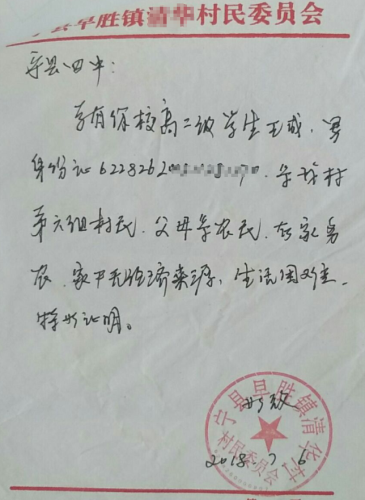 宁县早胜镇清华村民委员会
宁县四中：
兹有你校高二级学生王或，男
身份证6228262，系我村
第六组村民，父母系农民，在家务
农，家中无经济来源，生活困难。
特此证明。
此致
宁县早胜镇清华村
村民委员会
2018.7.6